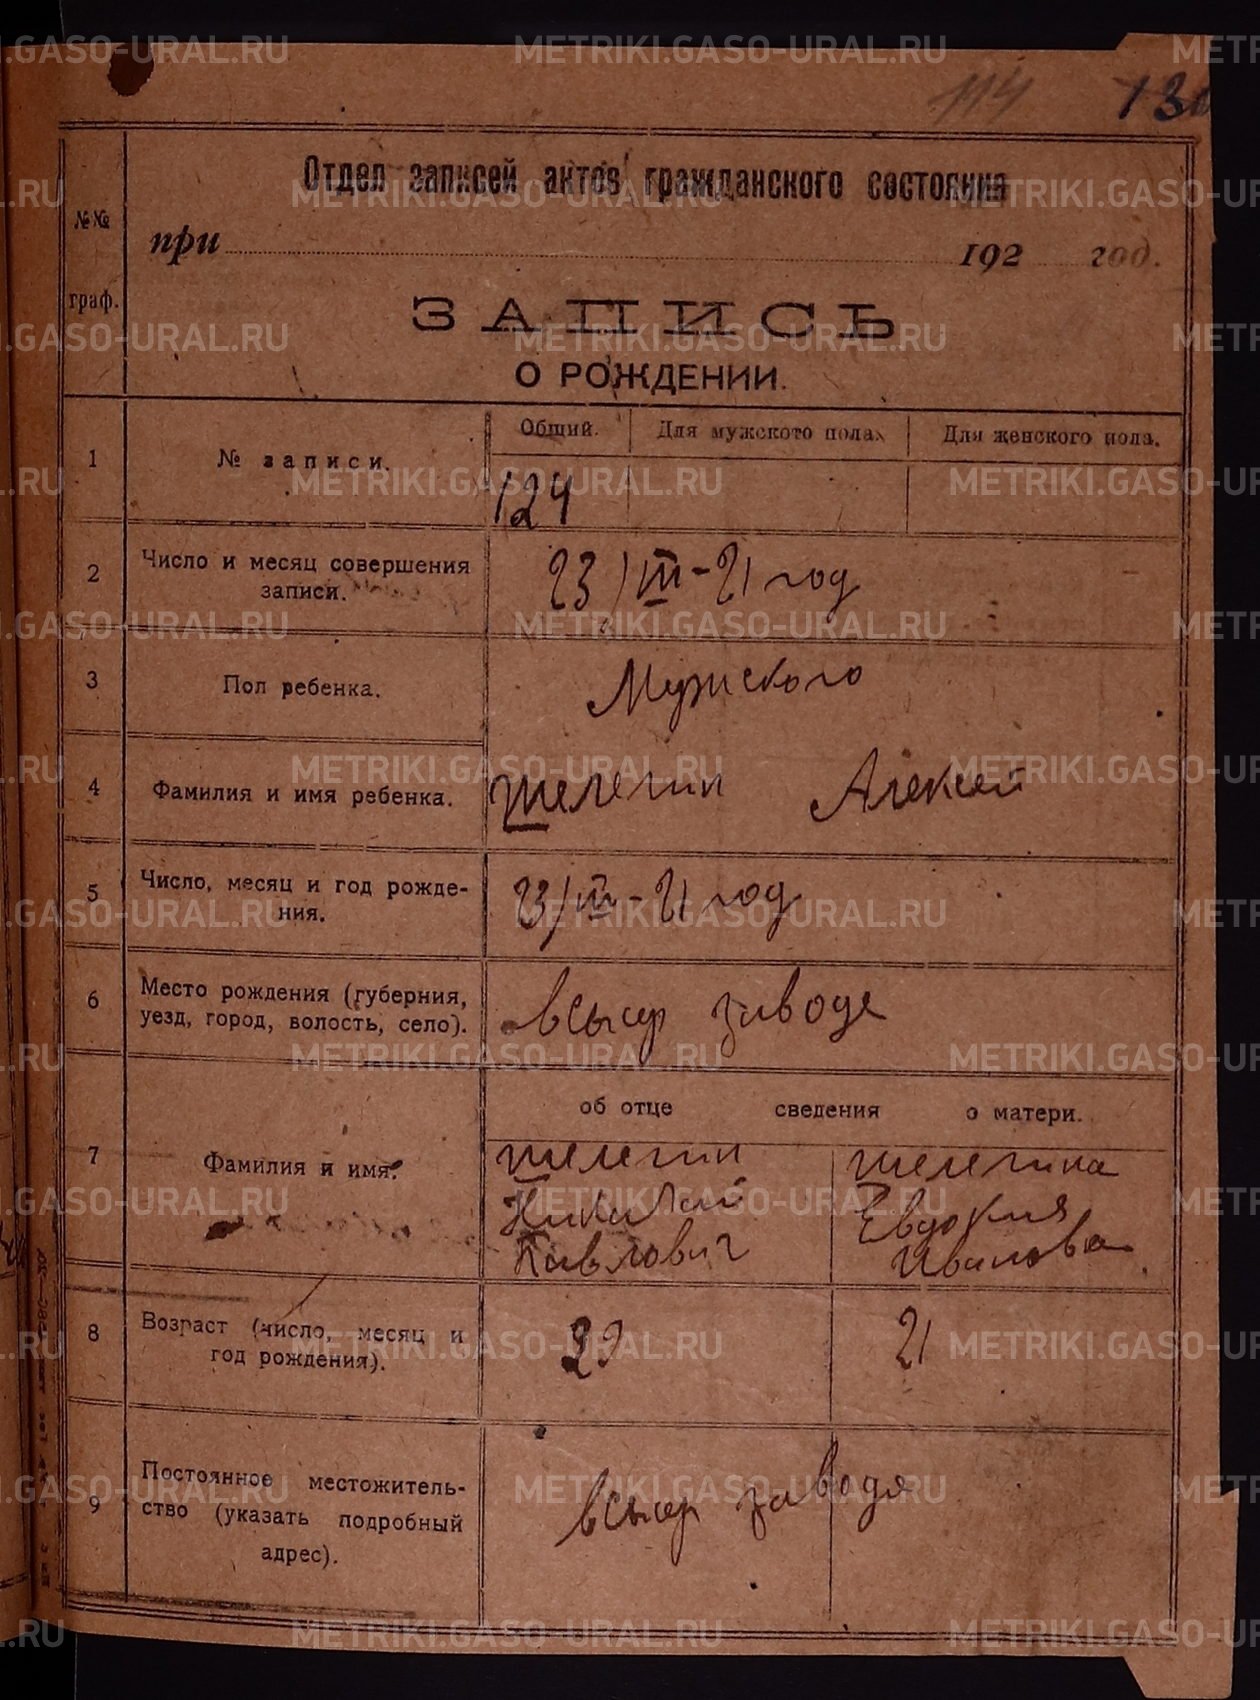 METRIKI.GASO-URAL.RU
114 130
Отдел записей актов гражданского состояния
№№
граф.
при 192 год.
ЗАПИСЬ
О РОЖДЕНИИ.
1
№ записи.
Общий. Для мужского пола. Для женского пола.
124
2
Число и месяц совершения
записи.
23/III-21 год
3
Пол ребенка.
Мужского
4
Фамилия и имя ребенка.
Шелегин Алексей
5
Число, месяц и год рожде-
ния.
23/III-21 год
6
Место рождения (губерния,
уезд, город, волость, село).
в Сысер заводе
об отце сведения о матери.
7
Фамилия и имя.
Шелегин
Николай
Павлович
Шелегина
Евдокия
Иванова
8
Возраст (число, месяц и
год рождения).
29
21
9
Постоянное местожитель-
ство (указать подробный
адрес).
в Сысер заводе